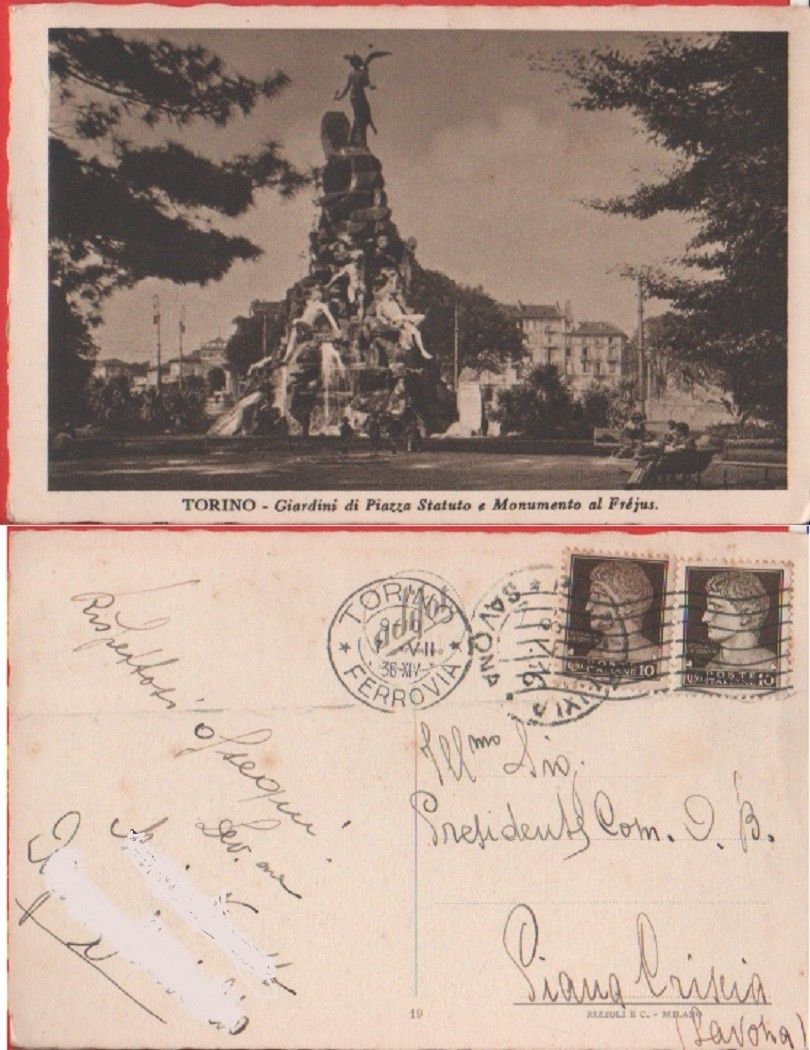 TORINO - Giardini di Piazza Statuto e Monumento al Fréjus.
Rispettosi
ossequi
Dev.ma
TORINO
FERROVIA
VII
36-XIV
SAVONA
POSTE
ITALIANE 10
POSTE
Ill.mo Sig.
Presidente Com. O. B.
Piana Crixia
(Savona)
19
RIZZOLI E C. - MILANO